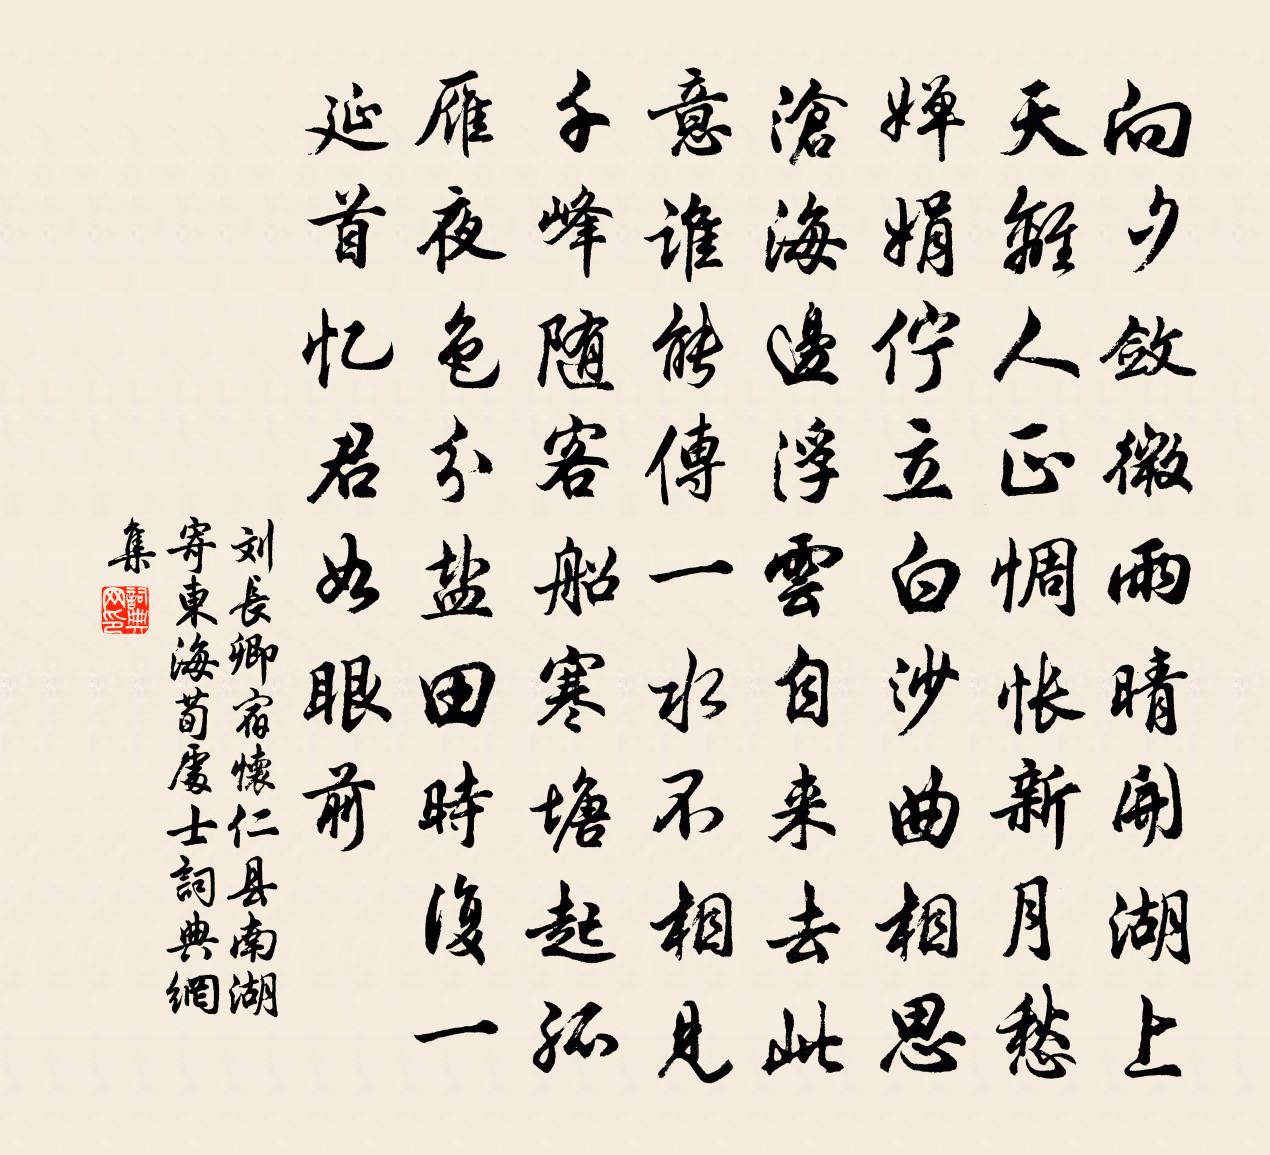 向夕斂微雨晴開湖上
天離人正惆悵新月愁
嬋娟佇立白沙曲相思
滄海邊浮雲自来去此
意誰能傳一水不相見
千峰随客船寒塘起孤
雁夜色分盐田時復一
延首忆君如眼前
刘長卿宿懷仁县南湖
寄東海荀處士詞典網
集
詞典网印